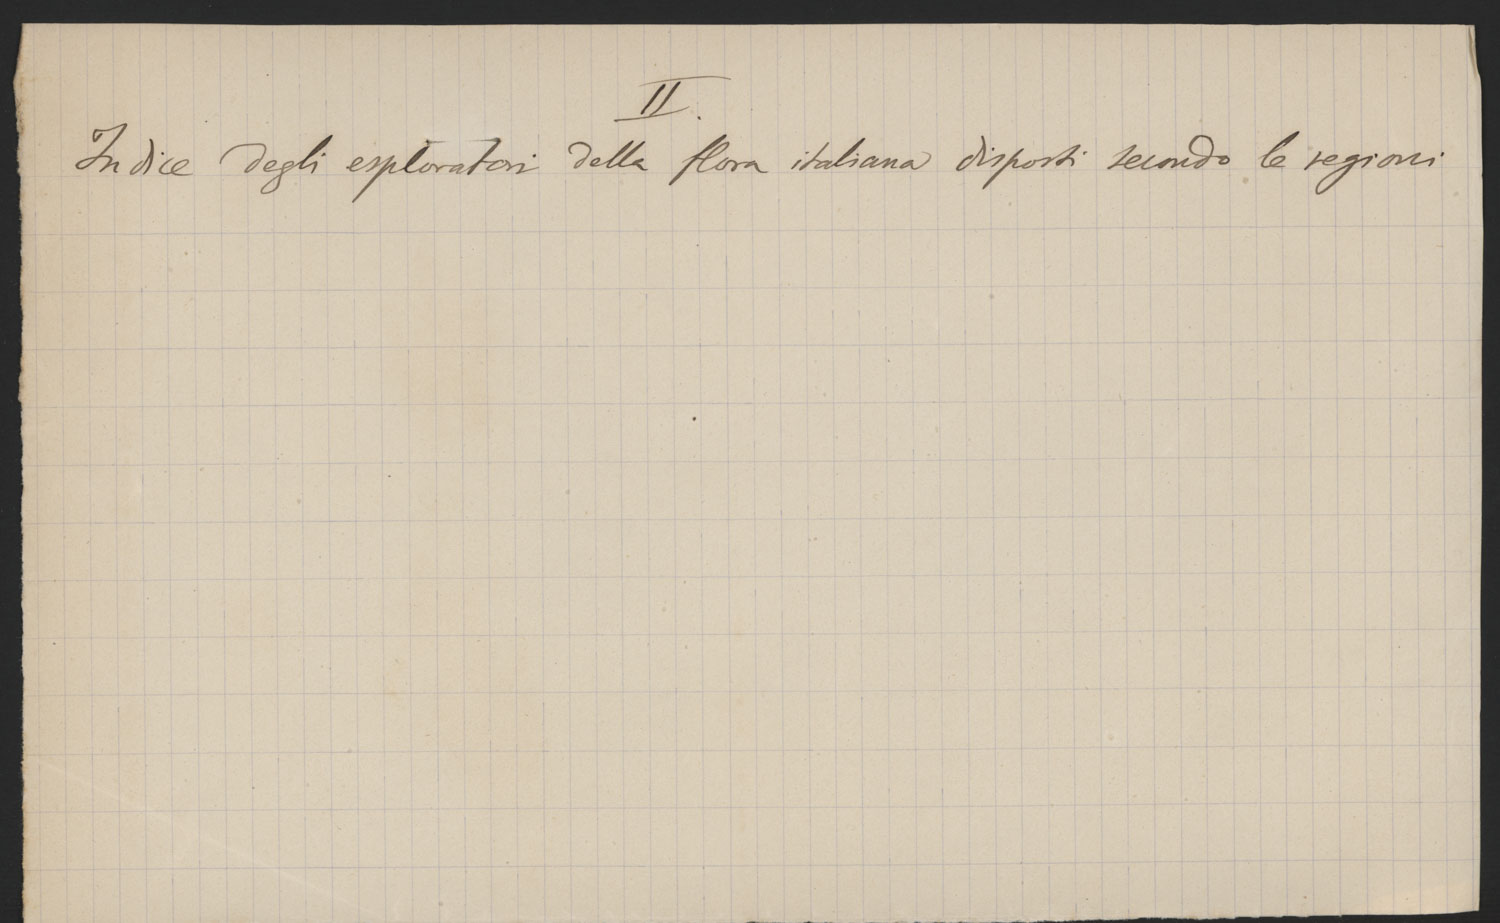 II.
Indice degli esploratori della flora italiana disposti secondo le regioni